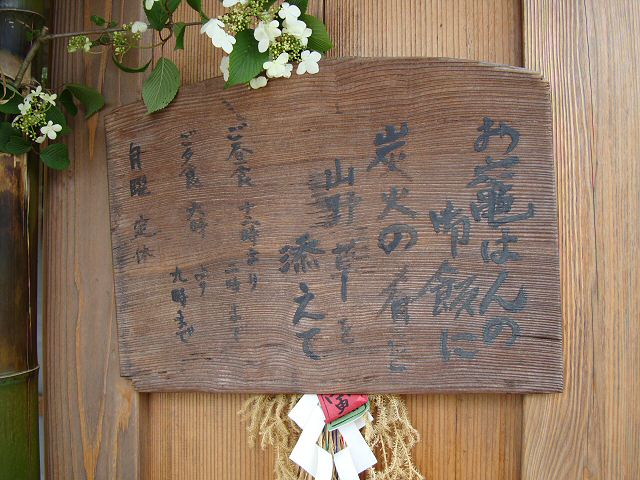 お竈はんの
御飯に
炭火の肴と
山野草を
添えて
ご昼食 十二時より
二時まで
ご夕食 六時より
九時まで
月曜 定休
寅